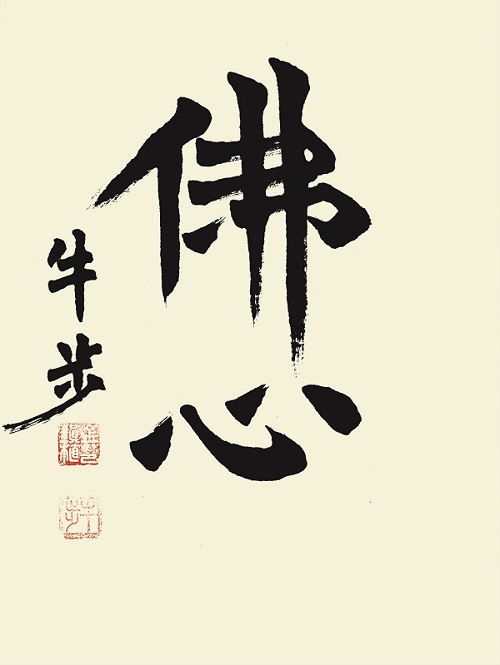 佛心
牛步